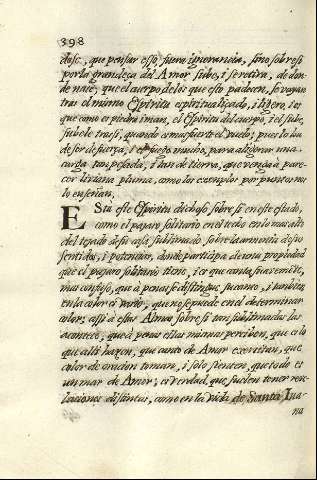 398
dose, que pensar esso fuera ignorancia, sino sobresi
por la grandeça del Amor sube, i se retira, de don-
de nace, que el cuerpo de los que esto padecen, se vayan
tras al mismo Espiritu espiritualiçado, i ligero, i es
que como es piedra iman, el Espiritu del cuerpo, i el sube,
subele tras si, quando es mas fuerte el buelo; pues lo ha
de ser de fuerça, i el fuego mucho, para alegerar una
carga tan pesada, i tan de tierra, que venga à pare-
cer liviana pluma, como los exemplos por puntos nos
lo enseñan.
Està este Espiritu dichoso sobre si en este estado,
como el pajaro solitario en el techo en lo mas alto
del tejado de su casa sublimado sobre la armonia de sus
sentidos, i potencias, donde participa de una propiedad
que el pajaro solitario tiene, i es que canta, su voz remite,
mas confuso, que à penas se distingue su canto, i tambien
en la color es vario, que no se puede en el determinar
color; assi à estas Almas sobre si tan sublimadas les
acontece, que à penas ellas mismas perciben, que es lo
que alli haçen, que canto de Amor exercitan, que
color de oracion toman, i solo sienten, que todo es
un mar de Amor; es verdad, que suelen tener reve-
laciones distintas, como en la vida de Santa Iua-
na